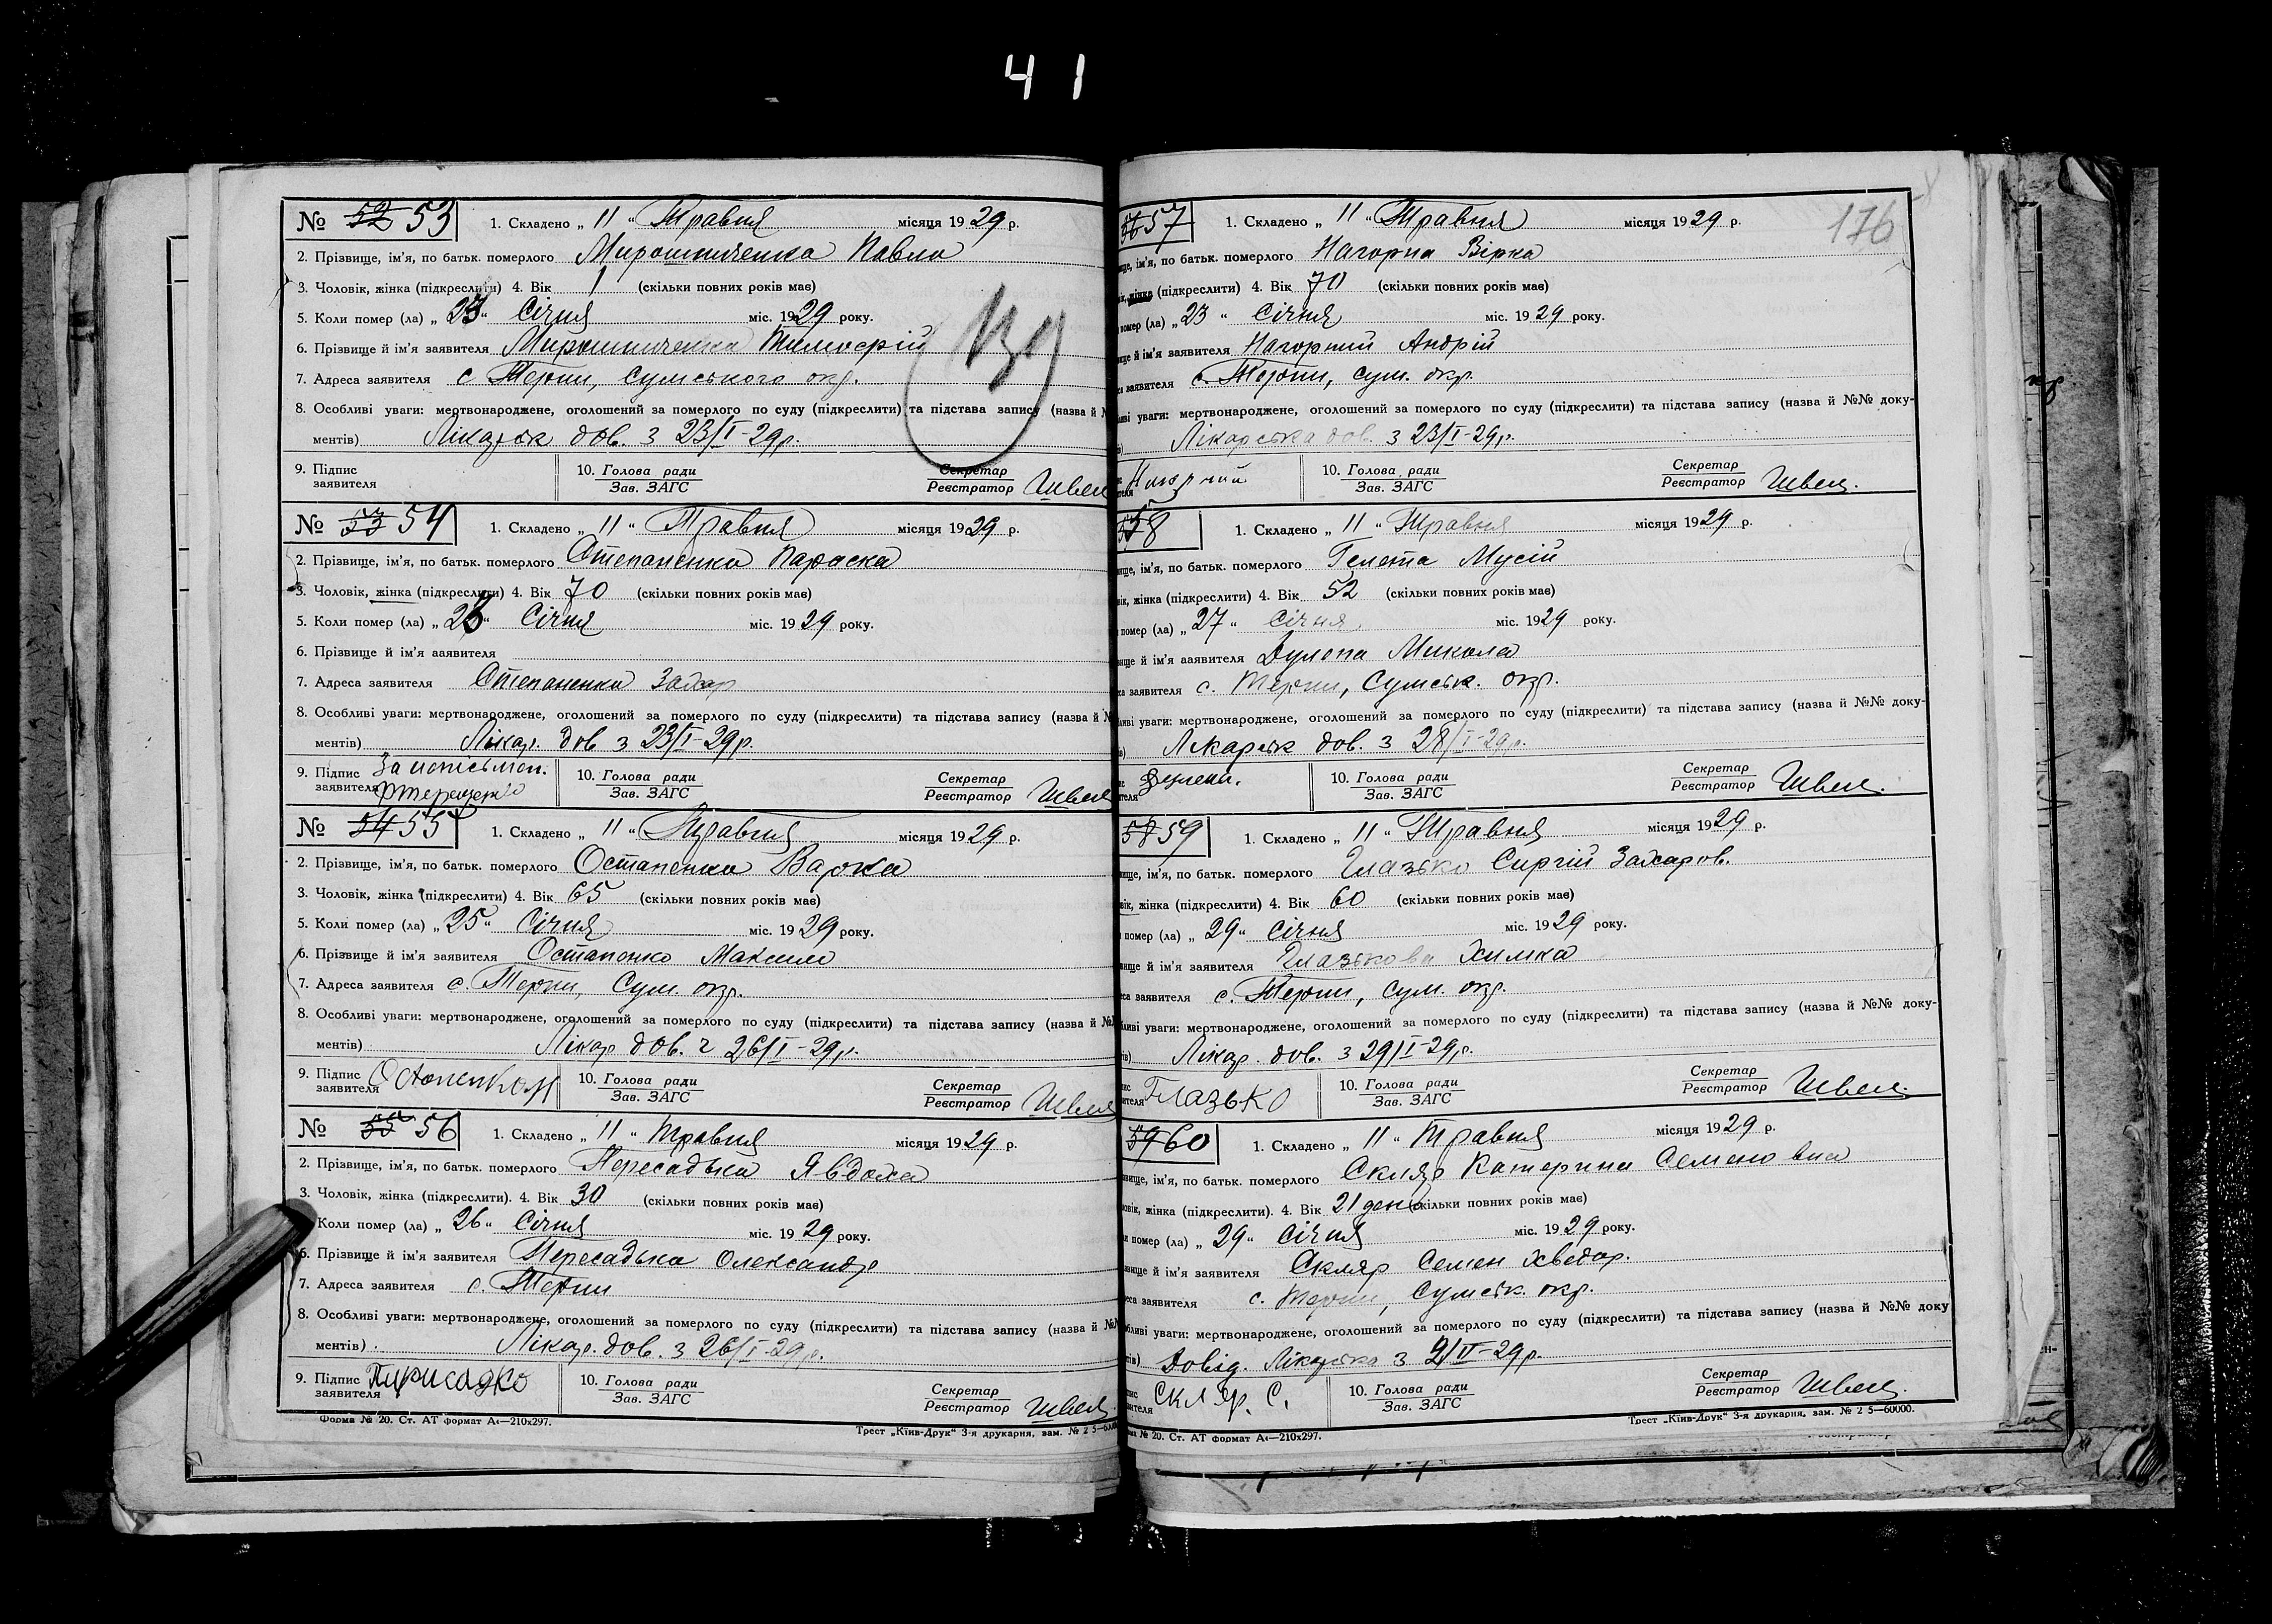 41
№ 52 53 1. Складено „ 11 “ Травня місяця 1929 р.
2. Прізвище, ім'я, по батьк. померлого Мирошниченко Павло
3. Чоловік, жінка (підкреслити) 4. Вік 1 (скільки повних років має)
5. Коли помер (ла) „ 23 “ Січня міс. 1929 року.
6. Прізвище й ім'я заявителя Мирошниченко Тимофій
7. Адреса заявителя с Терни, Сумського окр.
8. Особливі уваги: мертвонароджене, оголошений за померлого по суду (підкреслити) та підстава запису (назва й №
ментів) Лікарськ дов. з 23/I-29р.
9. Підпис заявителя 10. Голова ради Зав. ЗАГС Секретар Реєстратор Швец
№ 53 54 1. Складено „ 11 “ Травня місяця 1929 р.
2. Прізвище, ім'я, по батьк. померлого Степаненко Параска
3. Чоловік, жінка (підкреслити) 4. Вік 70 (скільки повних років має)
5. Коли помер (ла) „ 23 “ Січня міс. 1929 року.
6. Прізвище й ім'я заявителя
7. Адреса заявителя Степаненко Захар
8. Особливі уваги: мертвонароджене, оголошений за померлого по суду (підкреслити) та підстава запису (назва й №
ментів) Лікар. дов з 23/I-29р.
9. Підпис заявителя 10. Голова ради Зав. ЗАГС Секретар Реєстратор Швец
№ 54 55 1. Складено „ 11 “ Травня місяця 1929 р.
2. Прізвище, ім'я, по батьк. померлого Остапенко Варка
3. Чоловік, жінка (підкреслити) 4. Вік 65 (скільки повних років має)
5. Коли помер (ла) „ 25 “ Січня міс. 1929 року.
6. Прізвище й ім'я заявителя Остапенко Максим
7. Адреса заявителя с. Терни, Сум. окр.
8. Особливі уваги: мертвонароджене, оголошений за померлого по суду (підкреслити) та підстава запису (назва й №
ментів) Лікар дов. з 26/I-29р.
9. Підпис заявителя Остопенко М 10. Голова ради Зав. ЗАГС Секретар Реєстратор Швец
№ 55 56 1. Складено „ 11 “ Травня місяця 1929 р.
2. Прізвище, ім'я, по батьк. померлого Пересадько Явдоха
3. Чоловік, жінка (підкреслити). 4. Вік 30 (скільки повних років має)
Коли помер (ла) „ 26 “ Січня міс. 1929 року.
6. Прізвище й ім'я заявителя Пересадько Олександр
7. Адреса заявителя с. Терни
8. Особливі уваги: мертвонароджене, оголошений за померлого по суду (підкреслити) та підстава запису (назва й №
ментів) Лікар. дов. з 26/I-29р.
9. Підпис заявителя Пирисадко 10. Голова ради Зав. ЗАГС Секретар Реєстратор Швец
Форма № 20. Ст. АТ формат А4—210х297. Трест „Київ-Друк“ 3-я друкарня, зам. № 2 5—
176
56 57 1. Складено „ 11 “ Травня місяця 1929 р.
ім'я, по батьк. померлого Нагорна Вірка
жінка (підкреслити) 4. Вік 70 (скільки повних років має)
помер (ла) „ 23 “ Січня міс. 1929 року.
й ім'я заявителя Нагорний Андрій
заявителя с. Терни, Сум. окр.
уваги: мертвонароджене, оголошений за померлого по суду (підкреслити) та підстава запису (назва й №№ доку-
Лікарська дов. з 23/I-29р.
10. Голова ради Зав. ЗАГС Секретар Реєстратор Швец.
58 1. Складено „ 11 “ Травня місяця 1929 р.
ім'я, по батьк. померлого Гелета Мусій
жінка (підкреслити) 4. Вік 52 (скільки повних років має)
помер (ла) „ 27 “ Січня міс. 1929 року.
й ім'я заявителя Дулепа Микола
заявителя с. Терни, Сумськ. окр.
уваги: мертвонароджене, оголошений за померлого по суду (підкреслити) та підстава запису (назва й №№ доку-
Лікарськ дов. з 28/I-29р.
10. Голова ради Зав. ЗАГС Секретар Реєстратор Швец.
58 59 1. Складено „ 11 “ Травня місяця 1929 р.
ім'я, по батьк. померлого Глазько Сиргій Захаров.
жінка (підкреслити) 4. Вік 60 (скільки повних років має)
помер (ла) „ 29 “ Січня міс. 1929 року.
й ім'я заявителя Глазькова Химка
заявителя с. Терни, Сум. окр.
уваги: мертвонароджене, оголошений за померлого по суду (підкреслити) та підстава запису (назва й №№ доку-
Лікар. дов. з 29/I-29р.
Глазько 10. Голова ради Зав. ЗАГС Секретар Реєстратор Швец.
59 60 1. Складено „ 11 “ Травня місяця 1929 р.
ім'я, по батьк. померлого Скляр Катерина Семеновна
жінка (підкреслити). 4. Вік 21 день (скільки повних років має)
помер (ла) „ 29 “ Січня міс. 1929 року.
й ім'я заявителя Скляр Семен Хведор.
заявителя с. Терни, Сумськ. окр.
уваги: мертвонароджене, оголошений за померлого по суду (підкреслити) та підстава запису (назва й №№ доку
Довід. Лікарська з
Скляр. С. 10. Голова ради Зав. ЗАГС Секретар Реєстратор Швец.
№ 20. Ст. АТ формат А4—210х297. Трест „Київ-Друк“ 3-я друкарня, зам. № 2 5—60000.